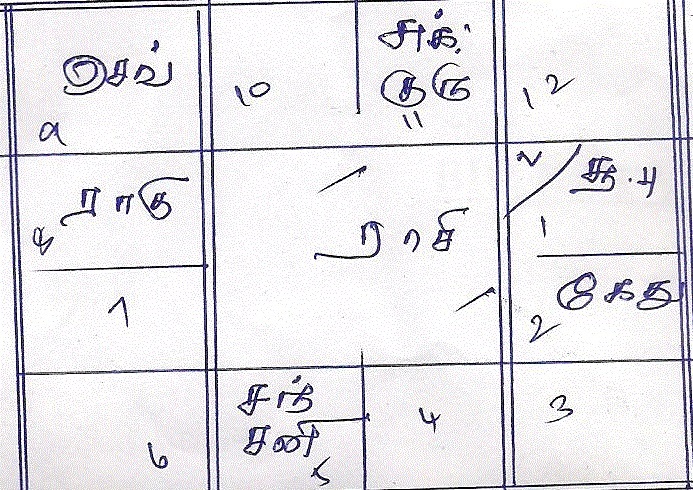 செவ்
9
10
சுக்
குரு
11
12
ராகு
8
ராசி
ல
சூ.பு
1
7
கேது
2
6
சந்
சனி
5
4
3